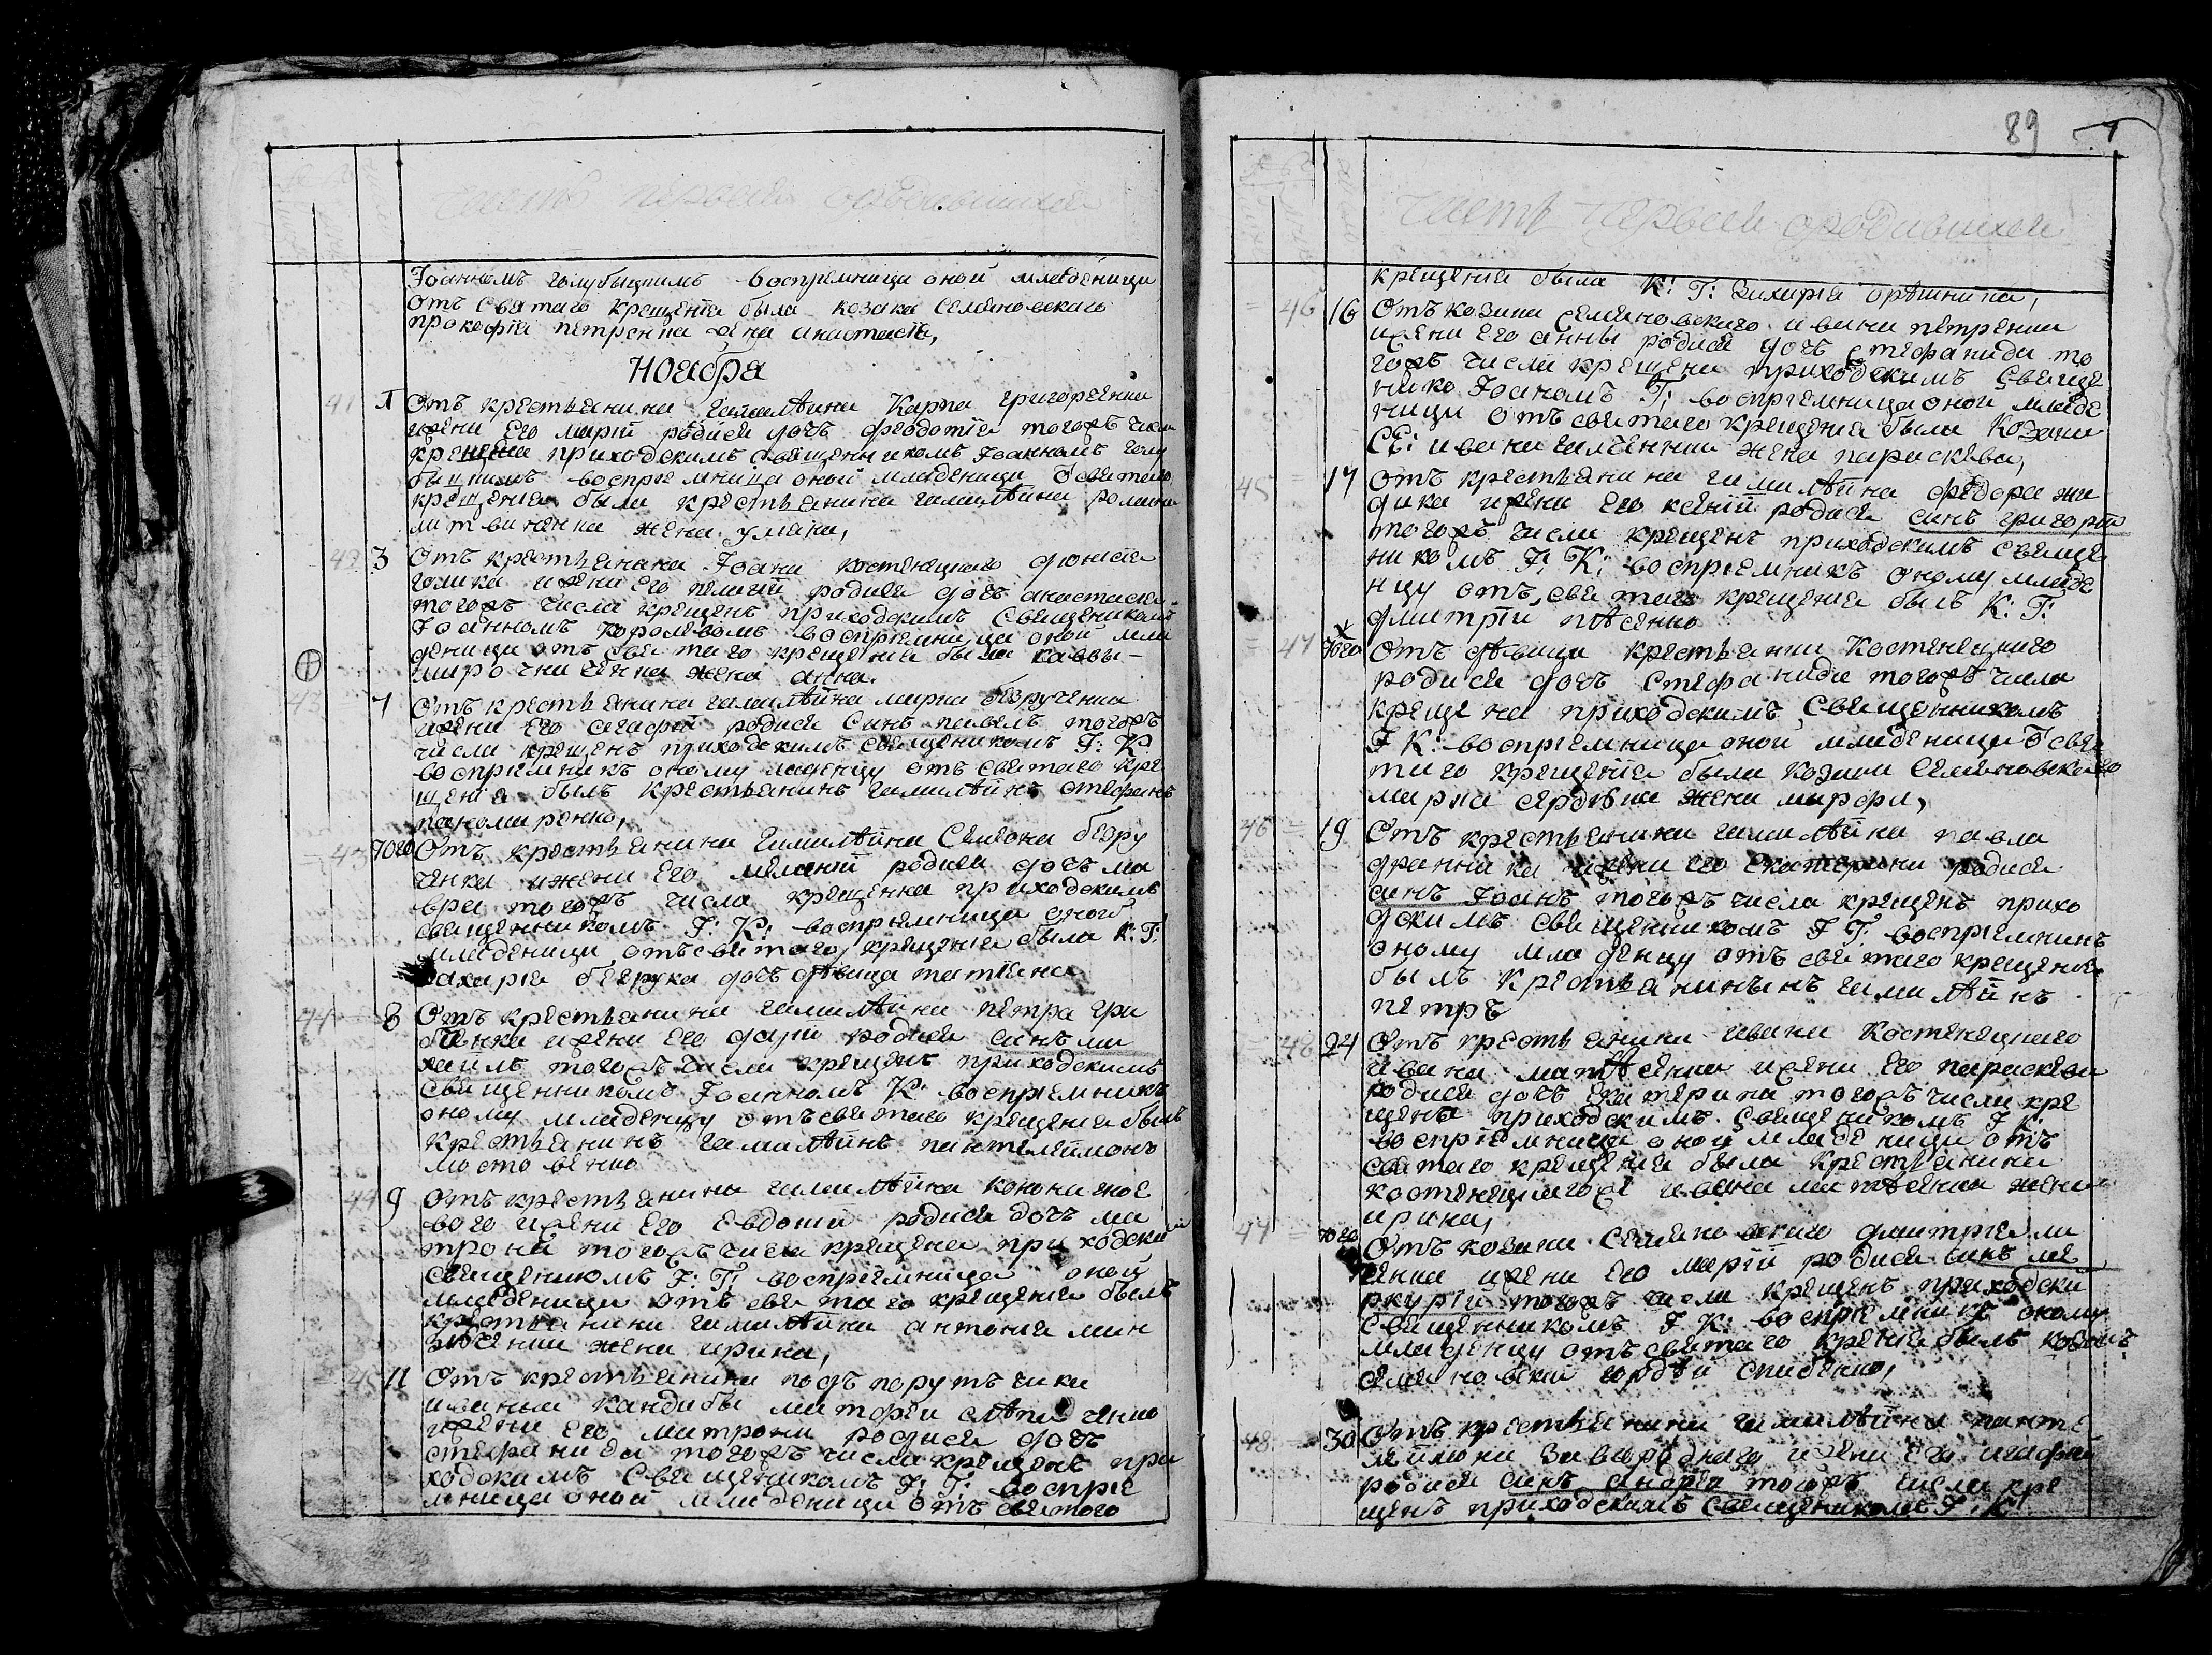 часть первая ородившихся
Іоанномъ голубницкимъ воспріемница оной младеницы
отъ святаго крещенія была козака Семяновскаго
прокофія петренка жена анастасія,
Ноября
41 1 Отъ крестьянина гамалѣина Карпа григоренка
ижени его маріи родися дочъ феодотія тогожъ числа
крещена приходскимъ священникомъ Іоанномъ голу
воспріемница оной младеницы ѿ святаго
крещенія была крестьянина гамалѣина романа
литвиненка жена улиана,
42 3 Отъ крестьянина Іоана костенецкаго
ижени его родися дочъ анастасія
тогожъ числа крещенъ приходскимъ священикомъ
Іоанномъ королевомъ воспріемница оной мла
деницы отъ святаго крещенія была
жена анна.
43 7 Отъ крестьянина гамалѣина марка безрученка
ижени его агафіи родися синъ павелъ тогожъ
числа крещенъ приходскимъ священикомъ І: К:
воспріемникъ оному младенцу отъ святаго кре
щенія былъ крестьянинъ гамалѣинъ стефанъ
паномаренко,
43 того Отъ крестьянина гамалѣина Семіона безру
ченка ижени его меланіи родися дочъ ма
вра тогожъ числа крещенна приходскимъ
священникомъ І: К: воспріемница оной
младеницы отъ святаго крещенія была К: Г:
захарія дочъ дѣвица татіана
44 8 Отъ крестьянина гамалѣина петра гри
бенка ижени его даріи родися синъ ми
хаилъ тогожъ числа крещенъ приходскимъ
священникомъ Іоанномъ К: воспріемникъ
оному младенцу отъ святаго крещенія былъ
крестьянинъ гамалѣинъ пантелеймонъ
мостовенко
44 9 Отъ крестьянина гамалѣина
ижени его Евдокіи родися дочъ ма
трона тогожъ числа крещена приходски
священикомъ І: Г: воспріемница оной
младеницы отъ святаго крещенія былъ
крестьянина гамалѣина антонія
жена ирина,
45 11 Отъ крестьянина подъпорутъчика
кандибы матфея
ижени его матрони родися дочъ
стефанида тогожъ числа крещенъ при
ходскимъ священикомъ І: Г: воспріе
мница оной младеницы отъ святого
89
часть первая ородившихся
крещенія была К: Г: Захарія орѣшкина,
46 16 Отъ козака семяновского ивана петренка
ижени его анны родися дочъ стефанида то
гожъ числа крещена приходскимъ свяще
нико Іоаномъ Г: воспріемница оной младе
ницы отъ святаго крещенія была козака
СЕ: ивана жена параскева,
45 17 Отъ крестьянина гамалѣина федора
ижени его родися синъ григорій
тогожъ числа крещенъ приходскимъ свяще
никомъ І: К: воспріемникъ оному младе
нцу отъ святаго крещенія былъ К: Г:
дмитрій
47 того Отъ дѣвици крестьянки Костенецкаго
родися дочъ стефанида тогожъ числа
крещена приходскимъ священникомъ
І К: воспріемница оной младеницы ѿ свя
таго крещенія была козака Семяновскаго
марка сердюка жена марфа,
46 19 Отъ крестьянина гамалѣина павла
ижени его екатерини родися
синъ Іоанъ тогожъ числа крещенъ прихо
дскимъ священникомъ І Г: воспріемникъ
оному младенцу отъ святаго крещенія
былъ крестьянинынъ гамалѣинъ
петръ
48 24 Отъ крестьянина ивана Костенецкаго
ивана матѣенка ижени его параскеви
родися дочъ екатерина тогожъ числа кре
щенъ приходскимъ священикомъ І К:
воспріемница оной младеницы отъ
святаго крещенія была крестьянина
костенецкаго ивана матвеенка жена
ирина,
47 того Отъ козака семяновскаго дмитрія
ижени его маріи родися синъ ме
ркурій тогожъ числа крещенъ приходски
священникомъ І К: воспріемникъ оному
младенцу отъ святаго крщенія былъ козакъ
семяновскій
48 30 Отъ крестьянина гамалѣина панте
леймона ижени его агафіи
родися синъ андрей тогожъ числа кре
щенъ приходскимъ священикомъ І: К: